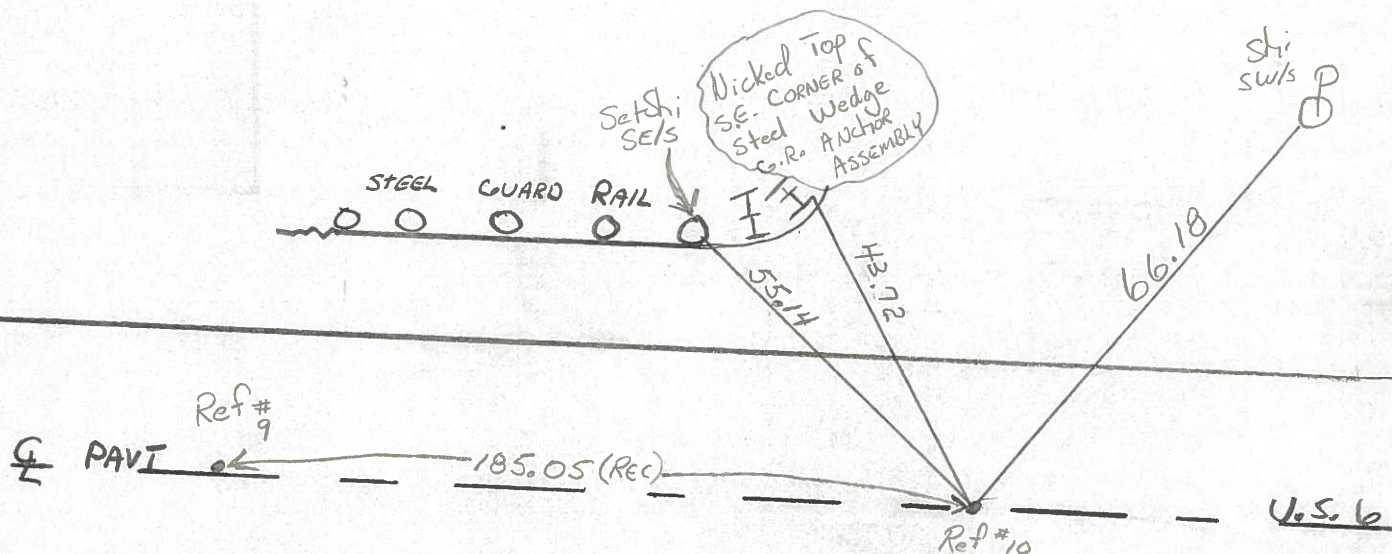 Nicked Top
S.E. CORNER of
Steel Wedge
G.R. ANCHOR
ASSEMBLY
Set Shi
SE/S
Shi
SW/S
P
STEEL GUARD RAIL
55.14
43.72
66.18
Ref #9
℄ PAVT
185.05 (REC)
U.S. 6
Ref #10